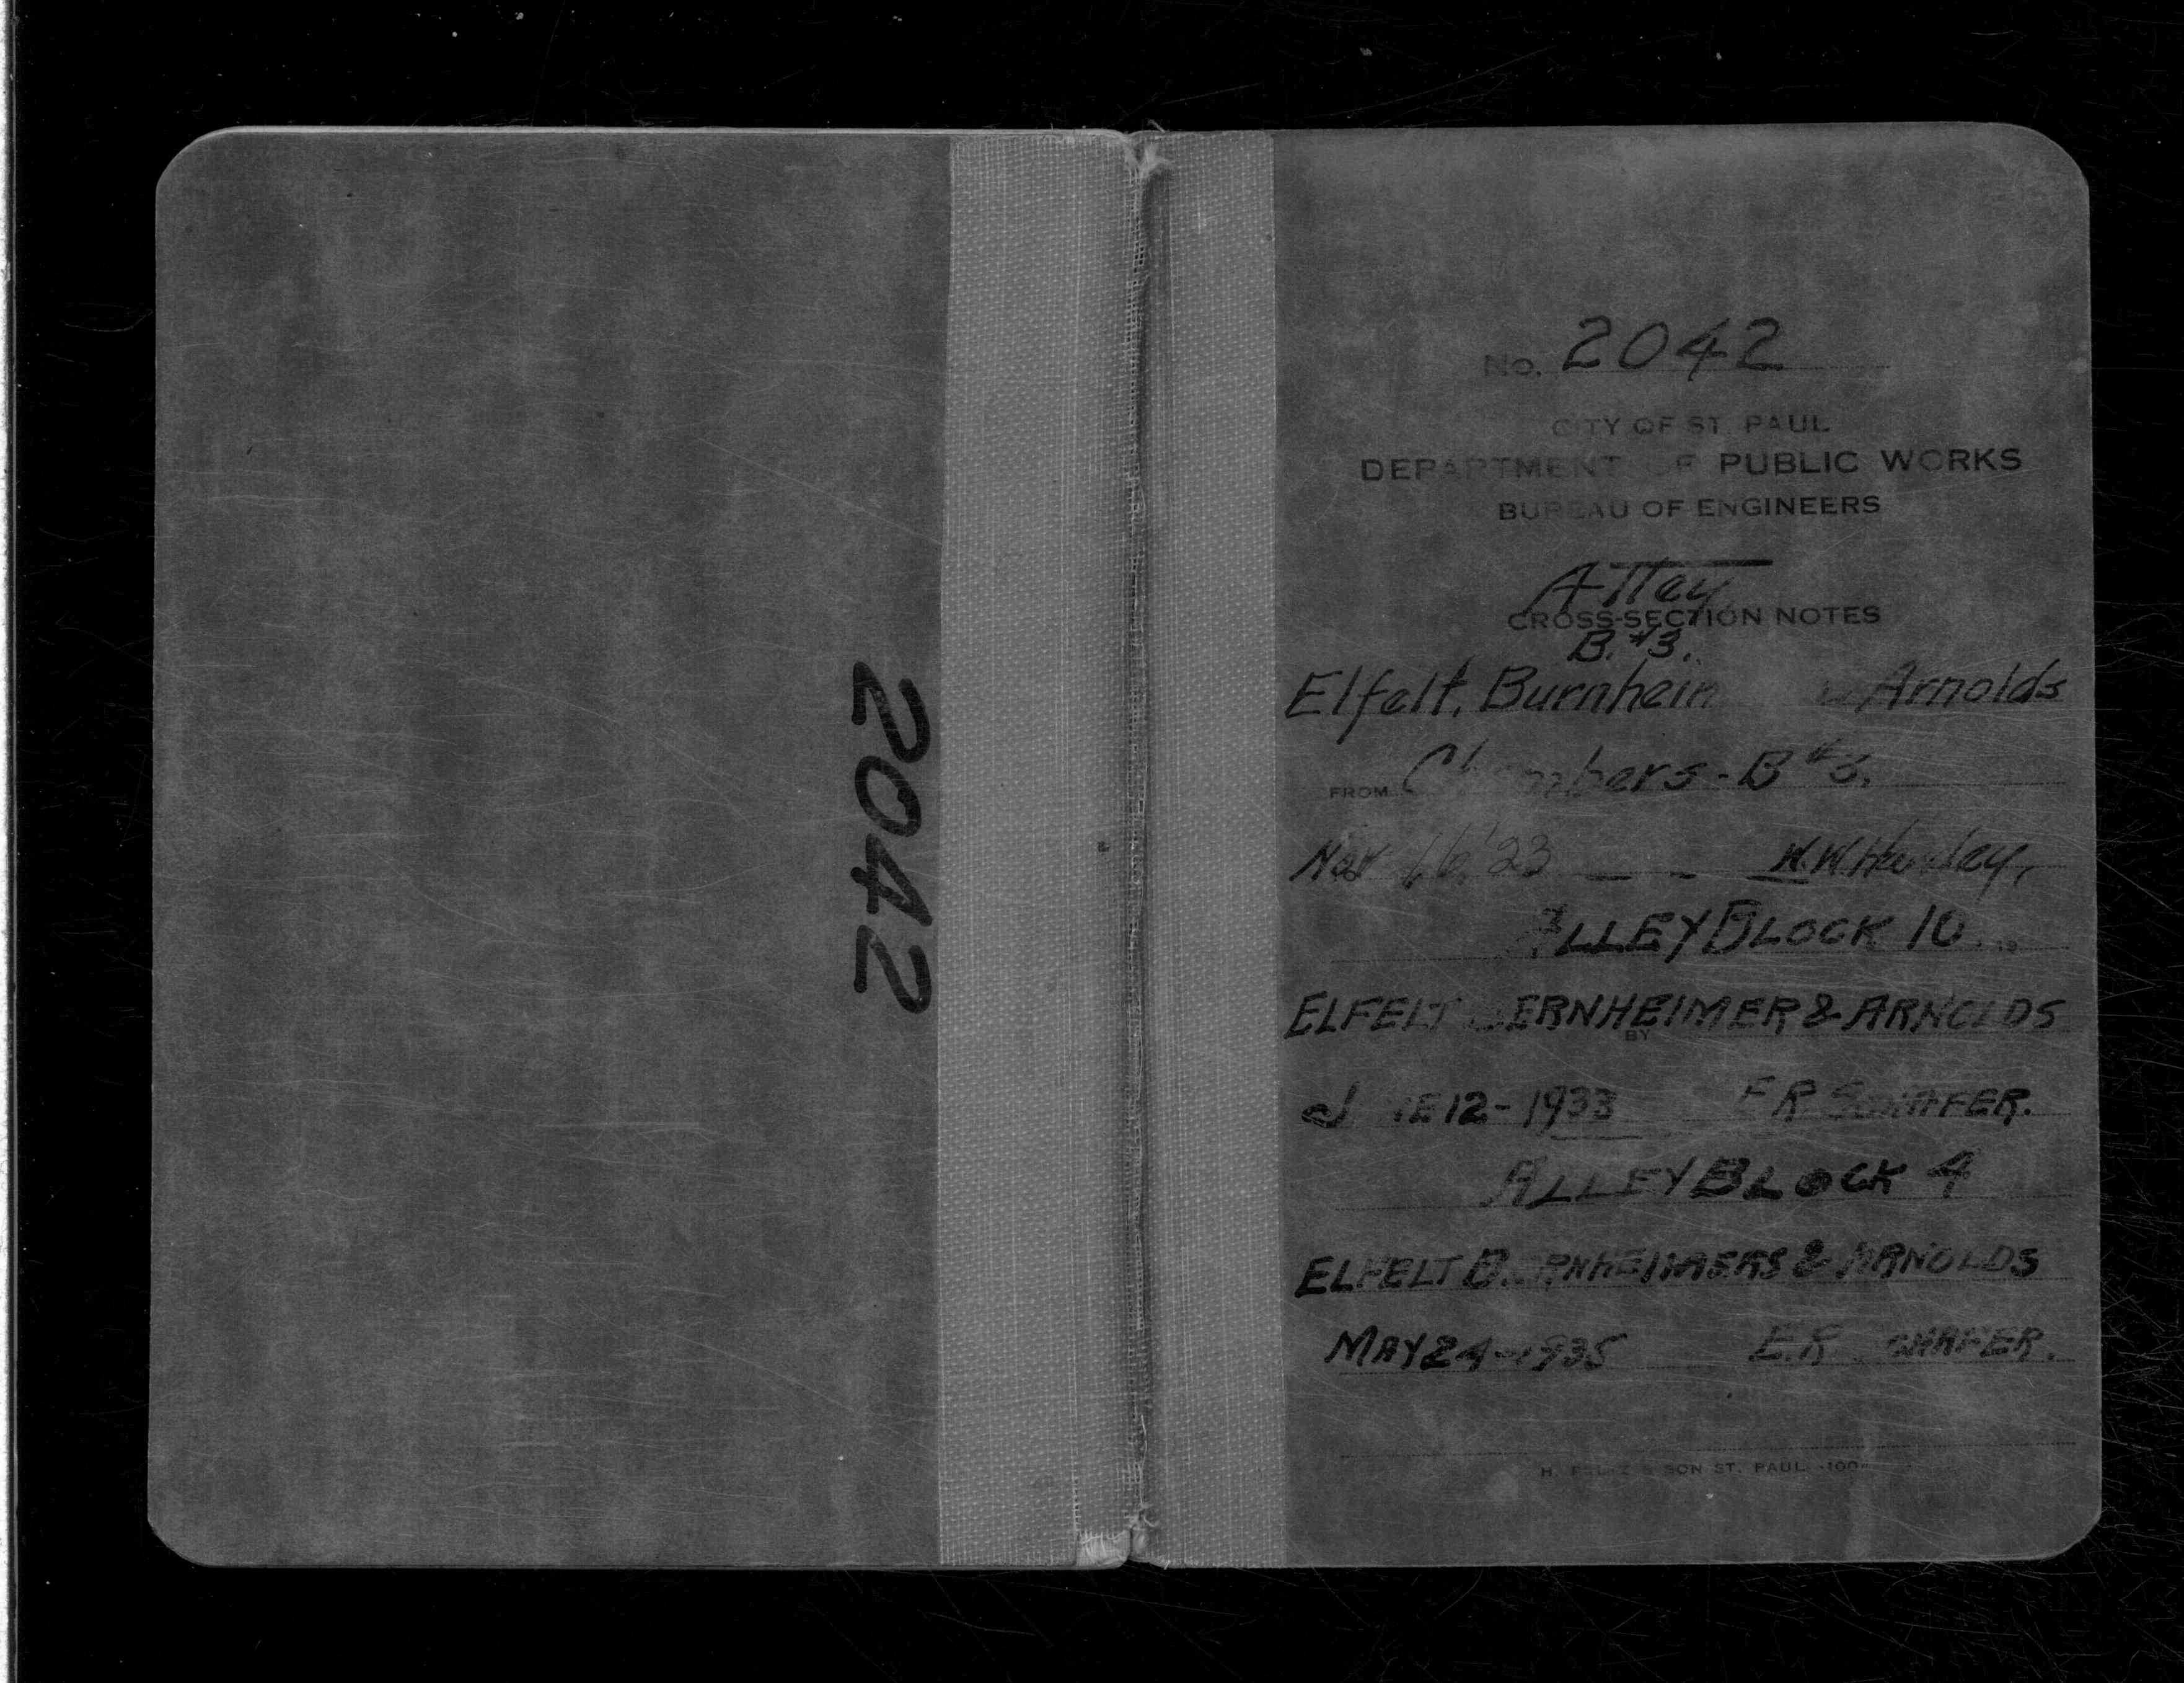 2042
No. 2042
CITY OF ST. PAUL
DEPARTMENT OF PUBLIC WORKS
BUREAU OF ENGINEERS
Alley
CROSS-SECTION NOTES
B.#3.
Elfelt, Burnheim Arnolds
FROM Chambers - B#3.
Nov 16, '23 - - W.W.
ALLEY BLOCK 10
ELFELT BERNHEIMER & ARNOLDS
BY
JUNE 12-1933 SHAFER.
ALLEY BLOCK 4
ELFELT BERNHEIMERS & ARNOLDS
MAY 24-1935 E.R. SHAFER.
SON ST. PAUL